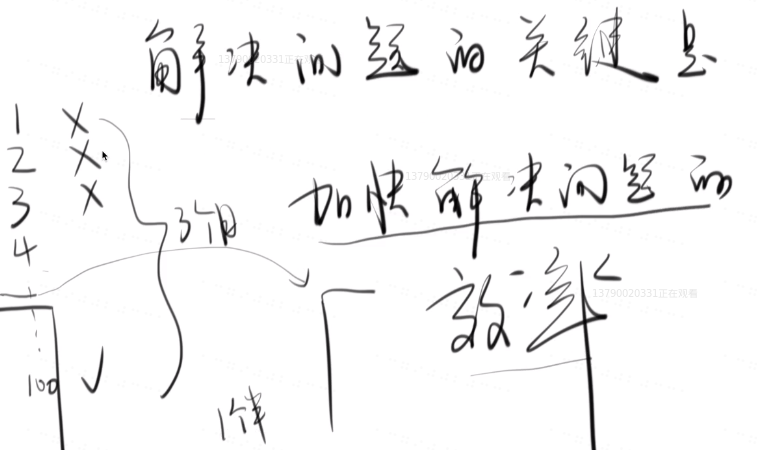 解决问题的关键是
加快解决问题的
效率
1 X
2 X
3 X
4
3个月
100 ✓
1个半
13790020331正在观看
13790020331正在观看
13790020331正在观看